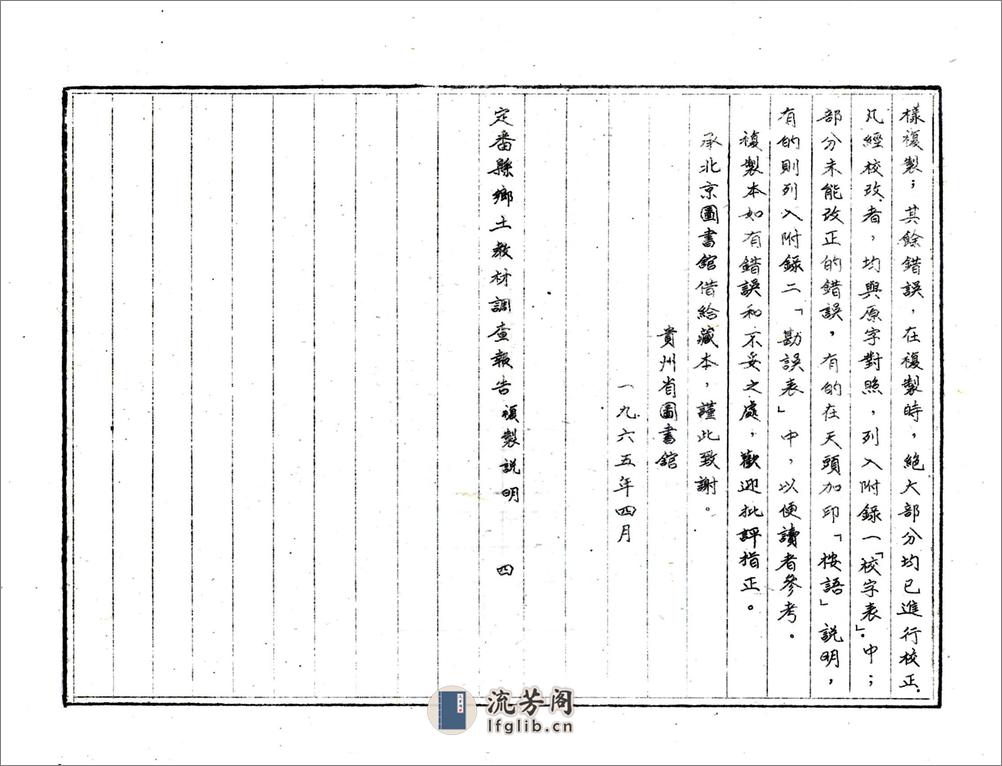 樣複製；其餘錯誤，在複製時，絕大部分均已進行校正。
凡經校改者，均與原字對照，列入附錄一「校字表」中；
部分未能改正的錯誤，有的在天頭加印「桉語」說明，
有的則列入附錄二「勘誤表」中，以便讀者參考。
複製本如有錯誤和不妥之處，歡迎批評指正。
承北京圖書館借給藏本，謹此致謝。
貴州省圖書館
一九六五年四月
定番縣鄉土教材調查報告 複製說明 四
流芳阁
lfglib.cn